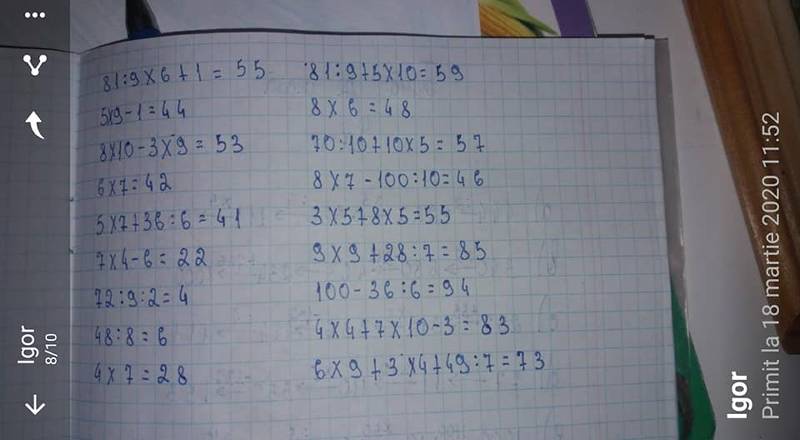 Igor
8/10
81:9x6+1=55
5x9-1=44
8x10-3x9=53
6x7=42
5x7+36:6=41
7x4-6=22
72:9:2=4
48:8=6
4x7=28
81:9+5x10=59
8x6=48
70:10+10x5=57
8x7-100:10=46
3x5+8x5=55
9x9+28:7=85
100-36:6=94
4x4+7x10-3=83
6x9+3x4+49:7=73
Igor
Primit la 18 martie 2020 11:52